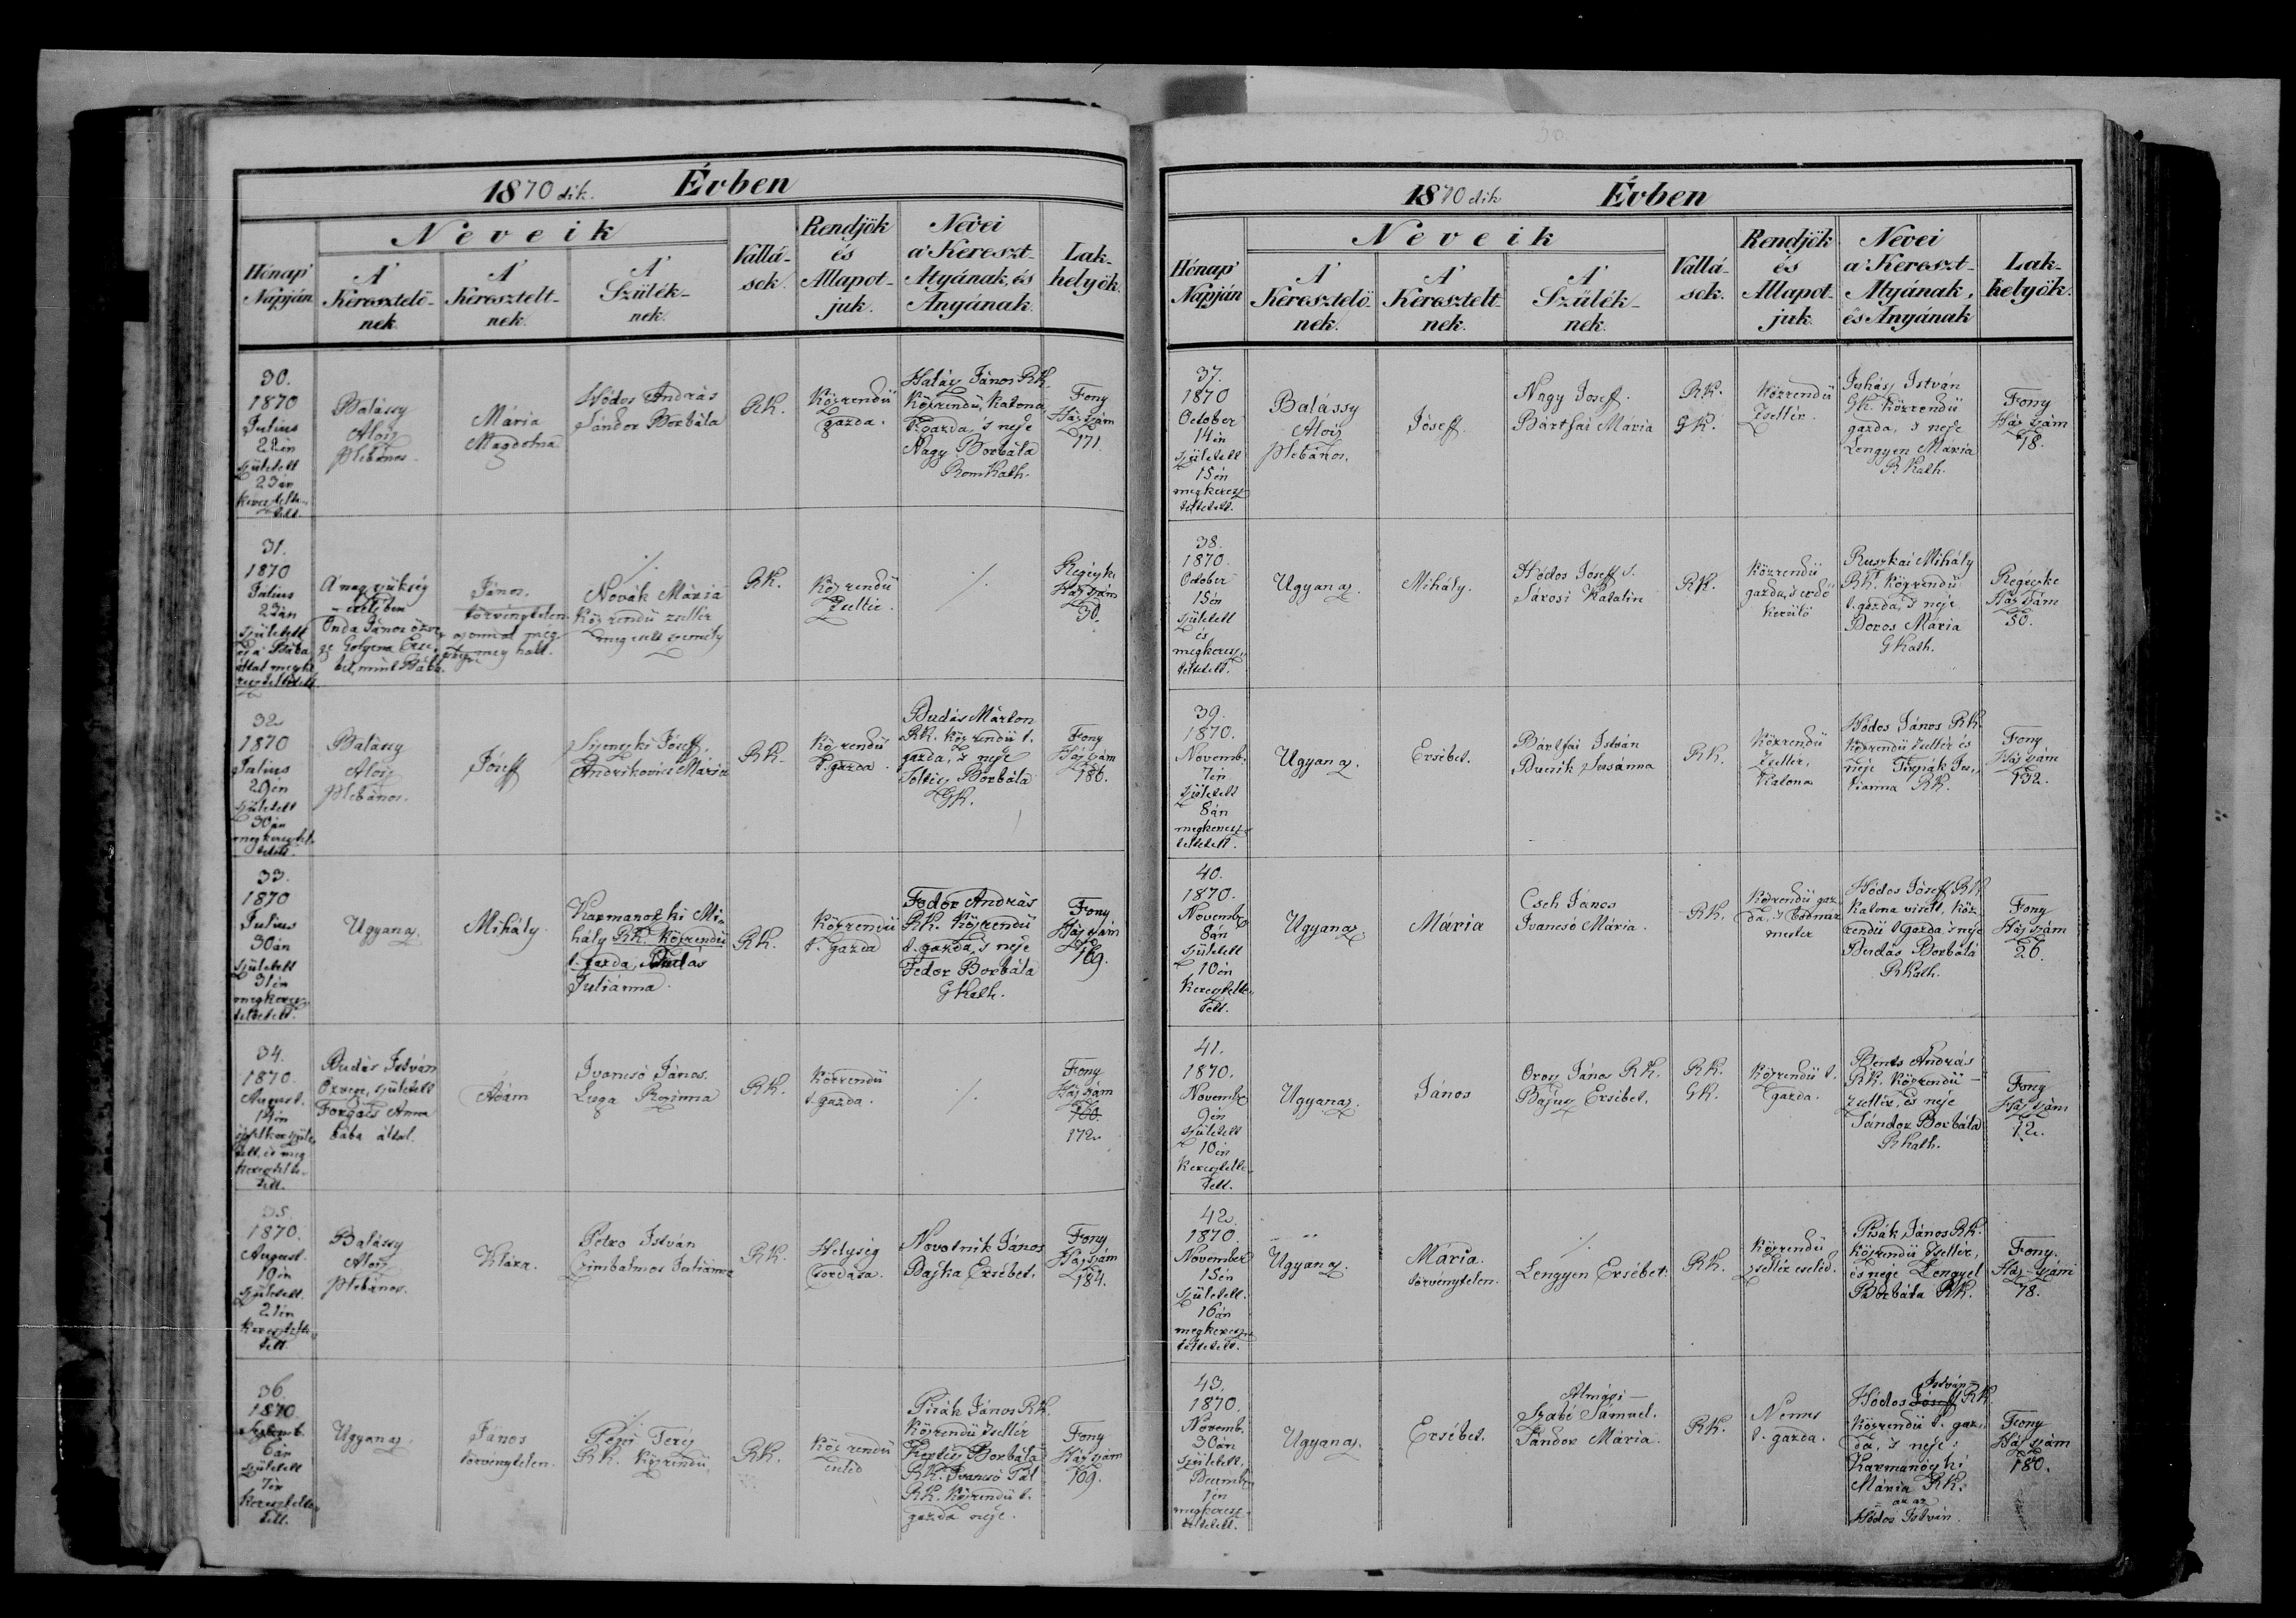 1870 dik. Évben
Hónap' Napján
Neveik
A' Keresztelő-nek.
A' Keresztelt-nek.
A' Szülék-nek.
Vallá-sok.
Rendjök és Állapot-juk.
Nevei a' Kereszt-Atyának, és Anyának.
Lak-helyök.
30.
1870
Julius
22én
született
23án
keresztelte-
tett.
Balássy
Aloiz
plebános.
Mária
Magdolna
Hódos András
Sándor Borbála
RK.
Közrendü
gazda.
Halász János RK.
Közrendü, katona
t. gazda, 's neje
Nagy Borbála
Rom Kath.
Fony
Ház szám
171.
31.
1870
Julius
23án
született
és a' Bába
által megke
reszteltetett.
A' nagy szükség
esetében
Onda János özve
gye
mint Bába.
János.
törvénytelen
azonnal meg
halt.
·/.
Novák Mária
Közrendü zsellér
meg esett személy
RK.
Közrendü
Zsellér.
·/.
Regéczke
Ház szám
30.
32.
1870
Julius
29én
született
30án
megkeresztel-
tetett.
Balássy
Aloiz
plebános.
Jóseff
Jóseff.
Andrikovics Mária
RK.
Közrendü
t. gazda.
Budás Márton
RK. közrendü t.
gazda, 's neje
Soltész Borbála
GK.
Fony
Ház szám
186.
33.
1870
Julius
30án
született
31én
megkeresz-
teltetett.
Ugyanaz.
Mihály.
Karmanoczki Mi
hály RK. közrendü
t. gazda, Dudás
Juliánna.
RK.
Közrendü
t. gazda
Fodor András
RK. Közrendü
t. gazda, 's neje
Fedor Borbála
GKath.
Fony
Ház szám
169.
34.
1870.
August.
14én
és meg
keresztelte-
tett.
Dudás István
Özvegye, született
Forgács Anna
bába által.
Ádám
Ivancsó János.
Luga Rozinna
RK.
Közrendü
t. gazda.
·/.
Fony
Ház szám
160.
172.
35.
1870.
August.
19én
született.
21én
keresztelte-
tett.
Balássy
Aloiz
plebános.
Klára.
Petro István
Czimbalmos Juliánna
RK.
Helység
Csordása.
Novotnik János
Bajka Ersébet.
Fony
Ház szám
184.
36.
1870.
Septemb.
6án
született
7én
keresztelte-
tett.
Ugyanaz.
János
törvénytelen.
·/.
Teréz
RK. közrendü
RK.
Közrendü
cseléd
Pisák János RK.
közrendü zsellér
Kertész Borbála
RK. Ivancsó Pál
RK. közrendü t.
gazda neje.
Fony
Ház szám
169.
1870 dik Évben
Hónap' Napján
Neveik
A' Keresztelő-nek.
A' Keresztelt-nek.
A' Szülék-nek.
Vallá-sok.
Rendjök és Állapot-juk.
Nevei a' Kereszt-Atyának, és Anyának
Lak-helyök.
37.
1870
October
14én
született
15én
megkeresz
teltetett.
Balássy
Aloiz
plebános.
Jóseff.
Nagy Joseff.
Bártfai Mária
RK.
GK.
Közrendü
Zsellér.
Juhász István
GK. közrendü
gazda, 's neje
Lengyen Mária
RKath.
Fony
Ház szám
18.
38.
1870.
October
15én
született
és
megkeresz
teltetett.
Ugyanaz.
Mihály.
Hódos Jóseff s.
Sárosi Katalin
RK.
Közrendü
gazda, 's erdő
kerülő
Ruszkai Mihály
RK. Közrendü
t. gazda, 's neje
Boros Mária
GKath.
Regéczke
Ház szám
50.
39.
1870.
Novemb.
7én
született
8án
megkeresz
teltetett.
Ugyanaz.
Ersébet.
Bártfai István
Susánna
RK.
Közrendü
Zsellér,
Katona
Hódos János RK.
közrendü zsellér és
neje Tirpák Ju-
lianna RK.
Fony
Ház szám
132.
40.
1870.
Novemb.
8án
született
10én
keresztelte-
tett.
Ugyanaz.
Mária
Cseh János
Ivancsó Mária.
RK.
Közrendü gaz
da, 's takács
mester
Hódos Jóseff RK
katona viselt, köz
rendü t. gazda, 's neje
Budás Borbála
RKath.
Fony
Ház szám
26.
41.
1870.
Novemb.
9én
született
10én
keresztelte-
tett.
Ugyanaz.
János
Orosz János RK.
Bajusz Ersébet.
RK.
GK.
Közrendü t.
gazda.
Bents András
RK. közrendü -
zsellér, és neje
Sándor Borbála
RKath.
Fony
Ház szám
12.
42.
1870.
November
15én
született.
16án
megkeresz
teltetett.
Ugyanaz.
Mária.
törvénytelen.
·/.
Lengyen Ersébet.
RK.
Közrendü
zsellér cseléd.
Pisák János RK.
közrendü zsellér,
és neje Lengyel
Borbála RK.
Fony.
Ház szám
78.
43.
1870.
Novemb.
30án
született,
Decemb.
1én
megkeresz-
teltetett.
Ugyanaz.
Ersébet.
Almási -
Szabó Sámuel.
Sándor Mária.
RK.
Nemes
t. gazda.
István
Hódos Jóseff RK
közrendü t. gaz-
da, 's neje:
Karmanóczki
Mária RK.
= az az
Hódos István.
Fony
Ház szám
180.